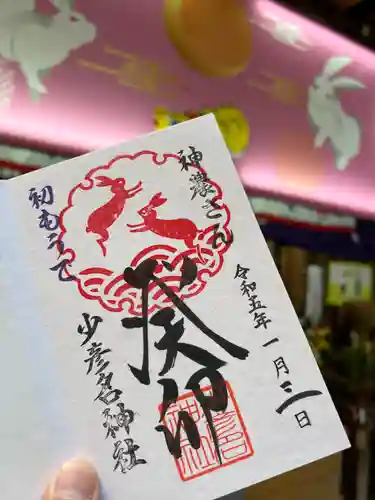 神農さん
令和五年一月三日
癸卯
初もうで
少彦名神社